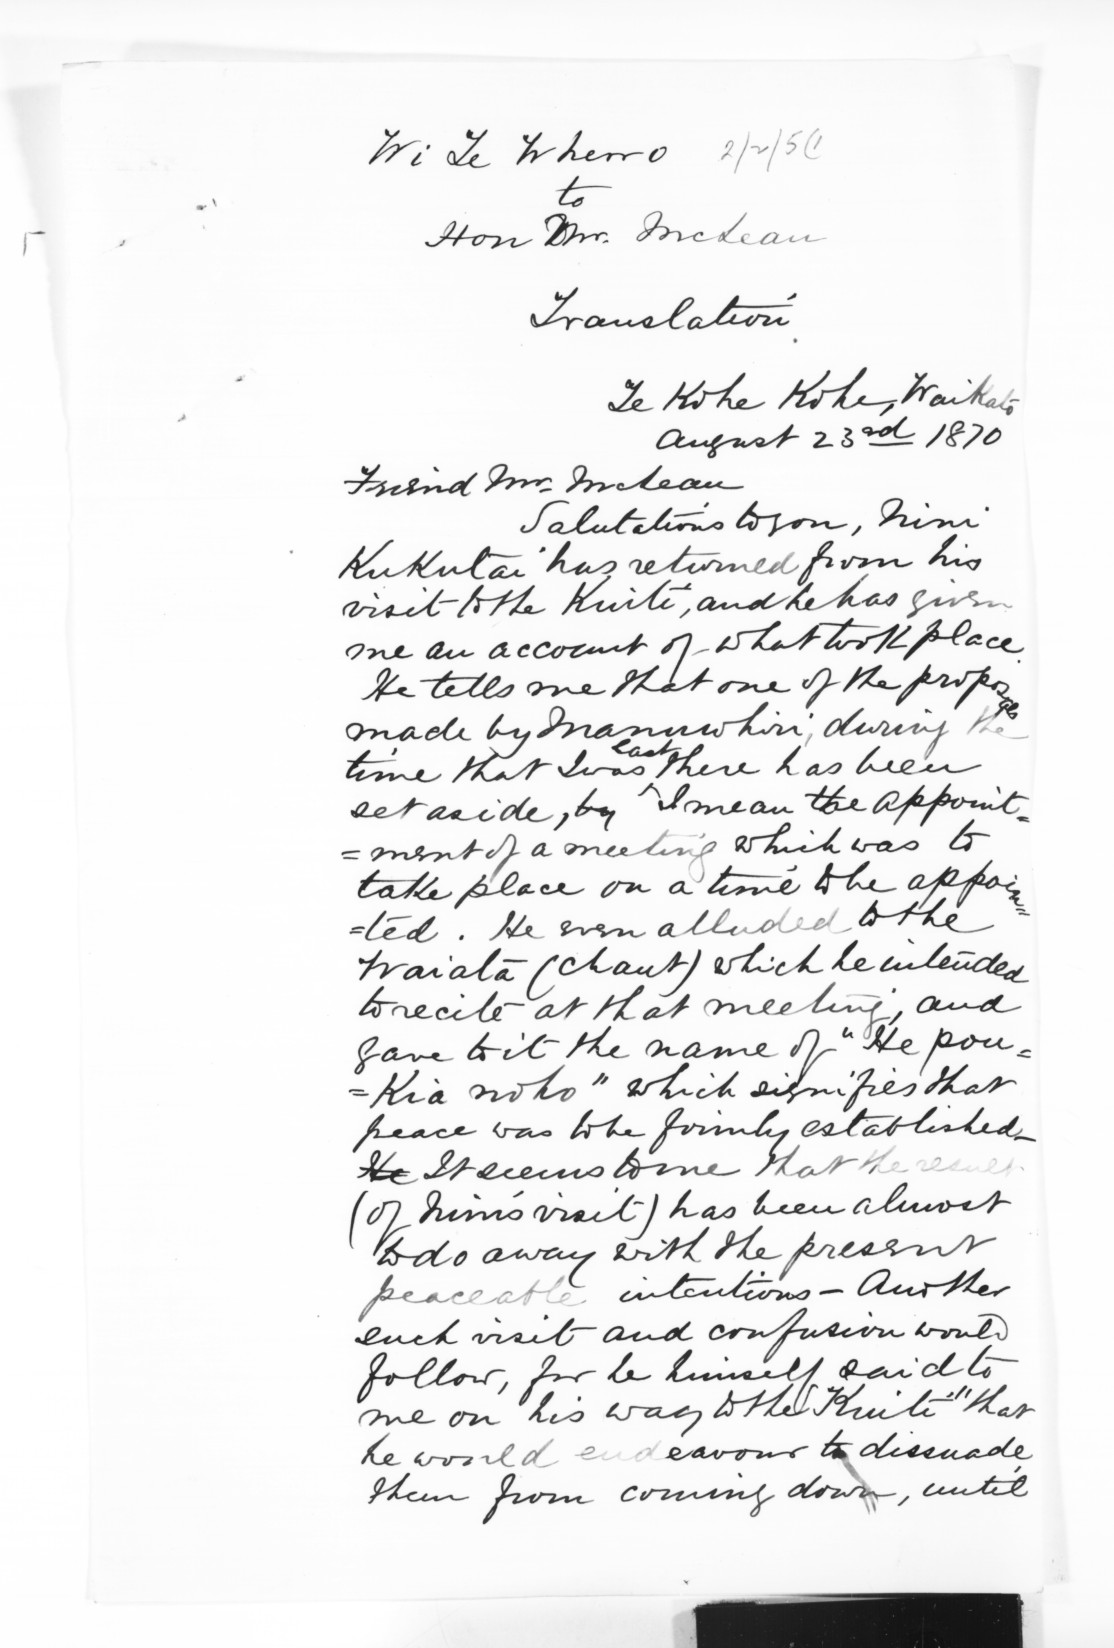 Wi Te Whero 2/2/5
to
Hon Mr. McLean
Translation.
Te Kohe Kohe, Waikato
August 23rd 1870
Friend Mr. McLean
Salutations to you, Nini
Kukutai has returned from his
visit to the Kuiti, and he has given
me an account of what took place.
He tells me that one of the proposals
made by Manuwhiri, during the
time that I was last there has been
set aside, by I mean the appoint=
=ment of a meeting which was to
take place on a time to be appoin=
=ted. He even alluded to the
Waiata (chaut) which he intended
to recite at that meeting, and
gave to it the name of "He pou=
=Kia noho" which signifies that
peace was to be firmly established–
He It seems to me that the result
(of Nini's visit) has been almost
to do away with the present
peaceable intentions – Another
such visit and confusion would
follow, for he himself said to
me on his way to the "Kuiti" that
he would endeavour to dissuade
them from coming down, until